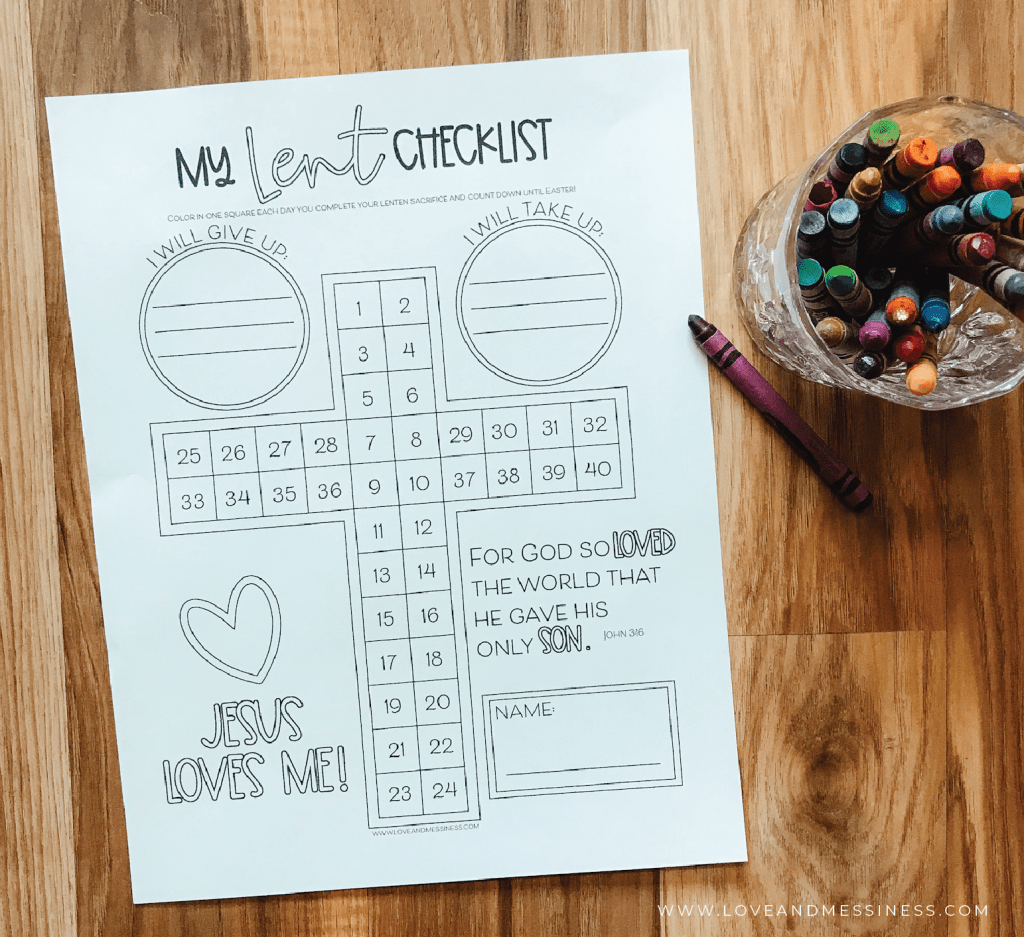 MY Lent CHECKLIST
COLOR IN ONE SQUARE EACH DAY YOU COMPLETE YOUR LENTEN SACRIFICE AND COUNT DOWN UNTIL EASTER!
I WILL GIVE UP:
I WILL TAKE UP:
1 2
3 4
5 6
25 26 27 28 7 8 29 30 31 32
33 34 35 36 9 10 37 38 39 40
11 12
13 14
15 16
17 18
19 20
21 22
23 24
FOR GOD SO LOVED
THE WORLD THAT
HE GAVE HIS
ONLY SON. JOHN 3:16
NAME:
JESUS
LOVES ME!
WWW.LOVEANDMESSINESS.COM
WWW.LOVEANDMESSINESS.COM